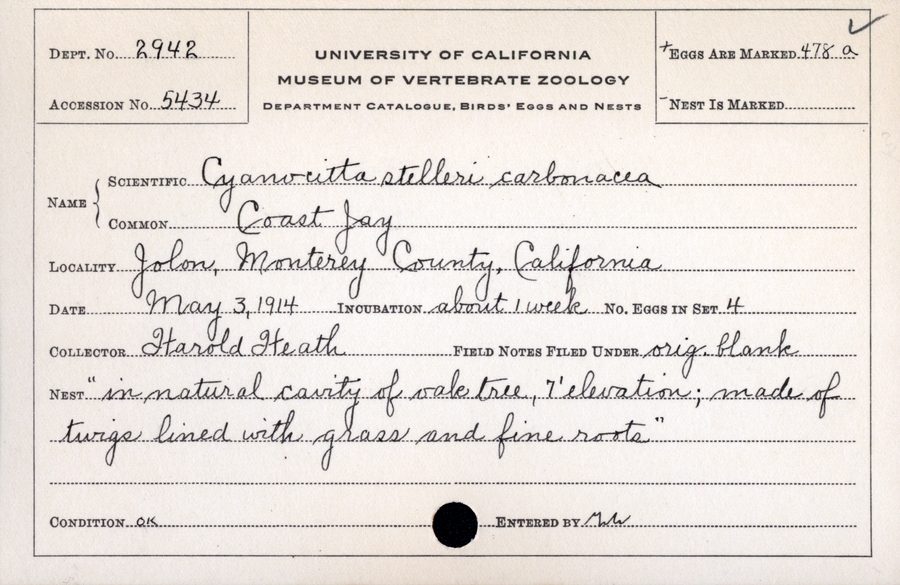 Dept. No. 2942
Accession No. 5434
UNIVERSITY OF CALIFORNIA
MUSEUM OF VERTEBRATE ZOOLOGY
Department Catalogue, Birds' Eggs and Nests
+Eggs Are Marked 478 a
-Nest Is Marked
Name
Scientific Cyanocitta stelleri carbonacea
Common Coast Jay
Locality Jolon, Monterey County, California
Date May 3, 1914 Incubation about 1 week No. Eggs in Set 4
Collector Harold Heath Field Notes Filed Under orig. blank
Nest "in natural cavity of oak tree, 7' elevation; made of
twigs lined with grass and fine roots"
Condition OK Entered by